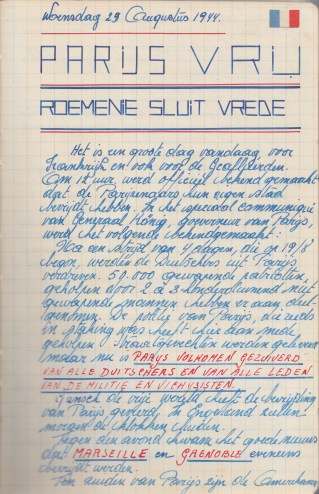 Woensdag 23 Augustus 1944.
PARIJS VRIJ
ROEMENIE SLUIT VREDE
Het is een groote dag vandaag voor
Frankrijk en ook voor de Geallieerden.
Om 1 uur werd officieel bekend gemaakt
dat de Parijzenaars hun eigen stad
bevrijdt hebben. In het speciaal communiqué
van Generaal König, Gouverneur van Parijs,
werd het volgende bekendgemaakt:
Na een strijd van 4 dagen, die op 19/8
begon, werden de Duitschers uit Parijs
verdreven. 50.000 gewapende patriotten,
geholpen door 2 à 3 honderdduizend niet
gewapende mannen hebben er aan deel-
genomen. De politie van Parijs, die reeds
in staking was heeft hier aan mede
geholpen. Straatgevechten werden geleverd
maar nu is PARIJS VOLKOMEN GEZUIVERD
VAN ALLE DUITSCHERS EN VAN ALLE LEDEN
VAN DE MILITIE EN VICHYSISTEN.
Gansch de vrije wereld heeft de bevrijding
van Parijs gevierd. In Engeland zullen
morgen de klokken luiden.
Tegen den avond kwam het goede nieuws
dat MARSEILLE en GRENOBLE eveneens
bevrijdt werden.
Ten zuiden van Parijs zijn de Amerikanen